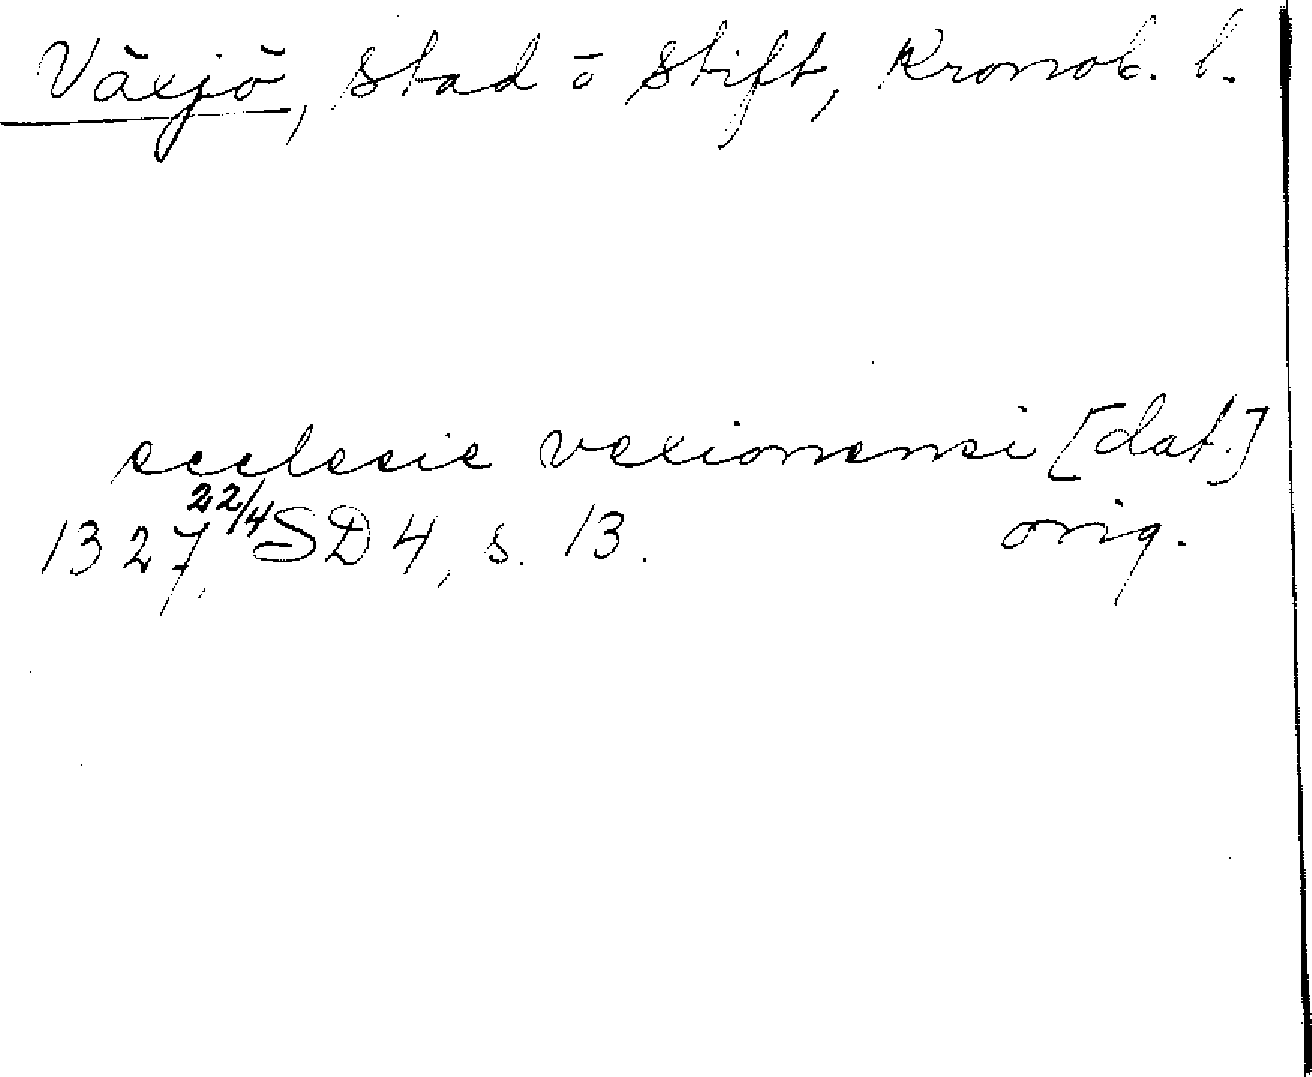 Växjö, stad o stift, Kronob. l.
ecclesie vexionensi [dat.]
1327 22/4 SD 4, s. 13. orig.